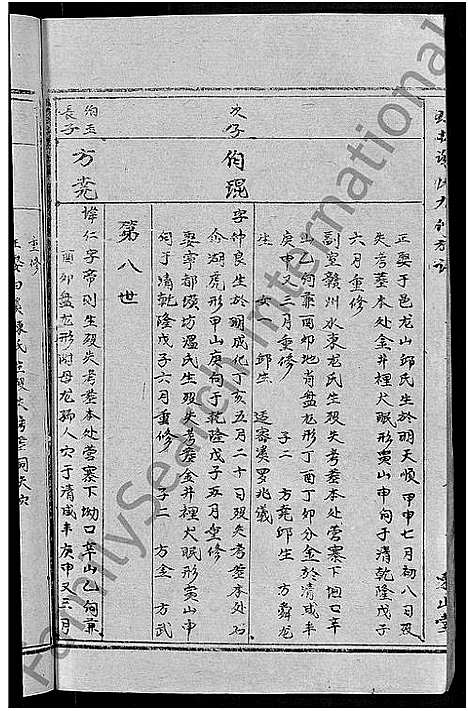 正娶于邑龙山邱氏生於明天顺甲申七月初八日殁
失考葬本处金井裡犬眠形寅山申向于清乾隆戊子
六月重修
副室赣州水东龙氏生殁失考葬本处营寨下坳口辛
山乙向兼酉卯地肖盘龙形丁酉丁卯分金於清咸丰
庚申又三月重修 子二 方尭邱生 方舜龙
生 女 邱生 适窑溪罗兆仪
次子 伯琨
字仲良生於明成化丁亥五月二十日殁失考葬本处石
龙湖虎形甲山庚向于乾隆戊子五月重修
娶宁都璜坊温氏生殁失考葬金井裡犬眠形寅山申
向于清乾隆戊子六月重修 子二 方金 方武
第八世
伯玉 長子 方尭
讳仁字帝则生殁失考葬本处营寨下坳口辛山乙向兼
酉卯盘龙形附母龙孺人穴于清咸丰庚申又三月
重修
FamilySearch International